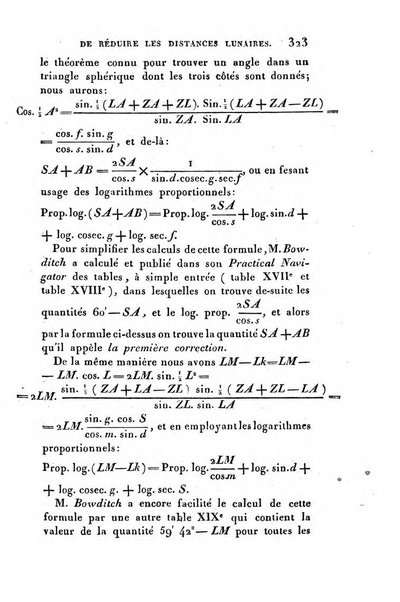 DE RÉDUIRE LES DISTANCES LUNAIRES. 323
le théorème connu pour trouver un angle dans un
triangle sphérique dont les trois côtés sont donnés;
nous aurons:
Cos. ½ A² = sin. ½ (LA + ZA + ZL). Sin. ½ (LA + ZA — ZL) / sin. ZA. Sin. LA =
= cos. f. sin. g / cos. s. sin. d , et de-là:
SA + AB = 2SA / cos. s × 1 / sin. d. cosec. g. sec. f , ou en fesant
usage des logarithmes proportionnels:
Prop. log. (SA + AB) = Prop. log. 2SA / cos. s + log. sin. d +
+ log. cosec. g + log. sec. f.
Pour simplifier les calculs de cette formule, M. Bow-
ditch a calculé et publié dans son Practical Navi-
gator des tables, à simple entrée ( table XVIIᵉ et
table XVIIIᵉ ), dans lesquelles on trouve de-suite les
quantités 60' — SA, et le log. prop. 2SA / cos. s , et alors
par la formule ci-dessus on trouve la quantité SA + AB
qu'il appèle la première correction.
De la même manière nous avons LM — Lk = LM —
— LM. cos. L = 2LM. sin. ½ L² =
= 2LM. sin. ½ (ZA + LA — ZL) sin. ½ (ZA + ZL — LA) / sin. ZL. sin. LA =
= 2LM sin. g. cos. S / cos. m. sin. d , et en employant les logarithmes
proportionnels:
Prop. log. (LM — Lk) = Prop. log. 2LM / cos. m + log. sin. d +
+ log. cosec. g + log. sec. S.
M. Bowditch a encore facilité le calcul de cette
formule par une autre table XIXᵉ qui contient la
valeur de la quantité 59' 42" — LM pour toutes les